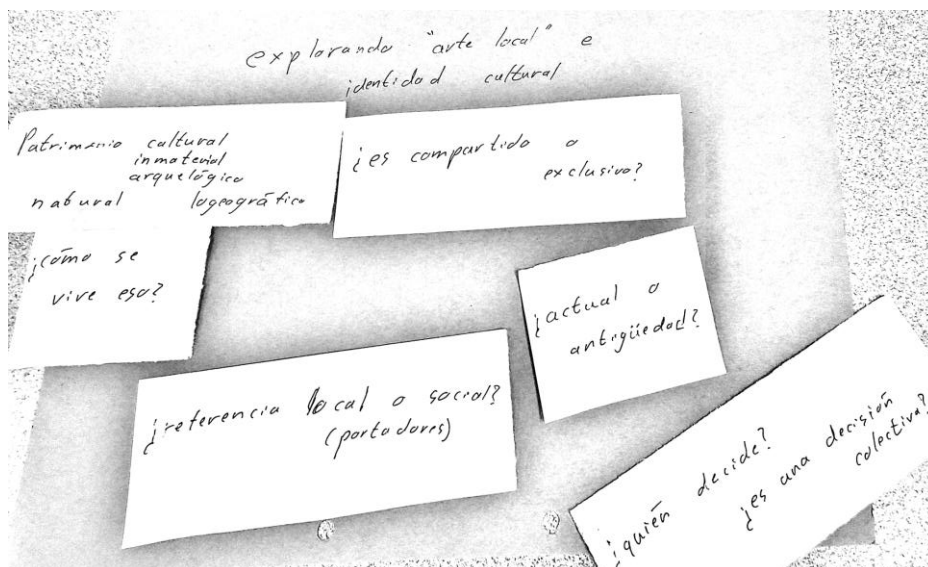 explorando "arte local" e
identidad cultural
Patrimonio cultural
inmaterial
arquelógico
natural logeográfico
¿es compartido o
exclusivo?
¿cómo se
vive eso?
¿actual o
antigüedad?
¿referencia local o social?
(portadores)
¿quién decide?
¿es una decisión
colectiva?